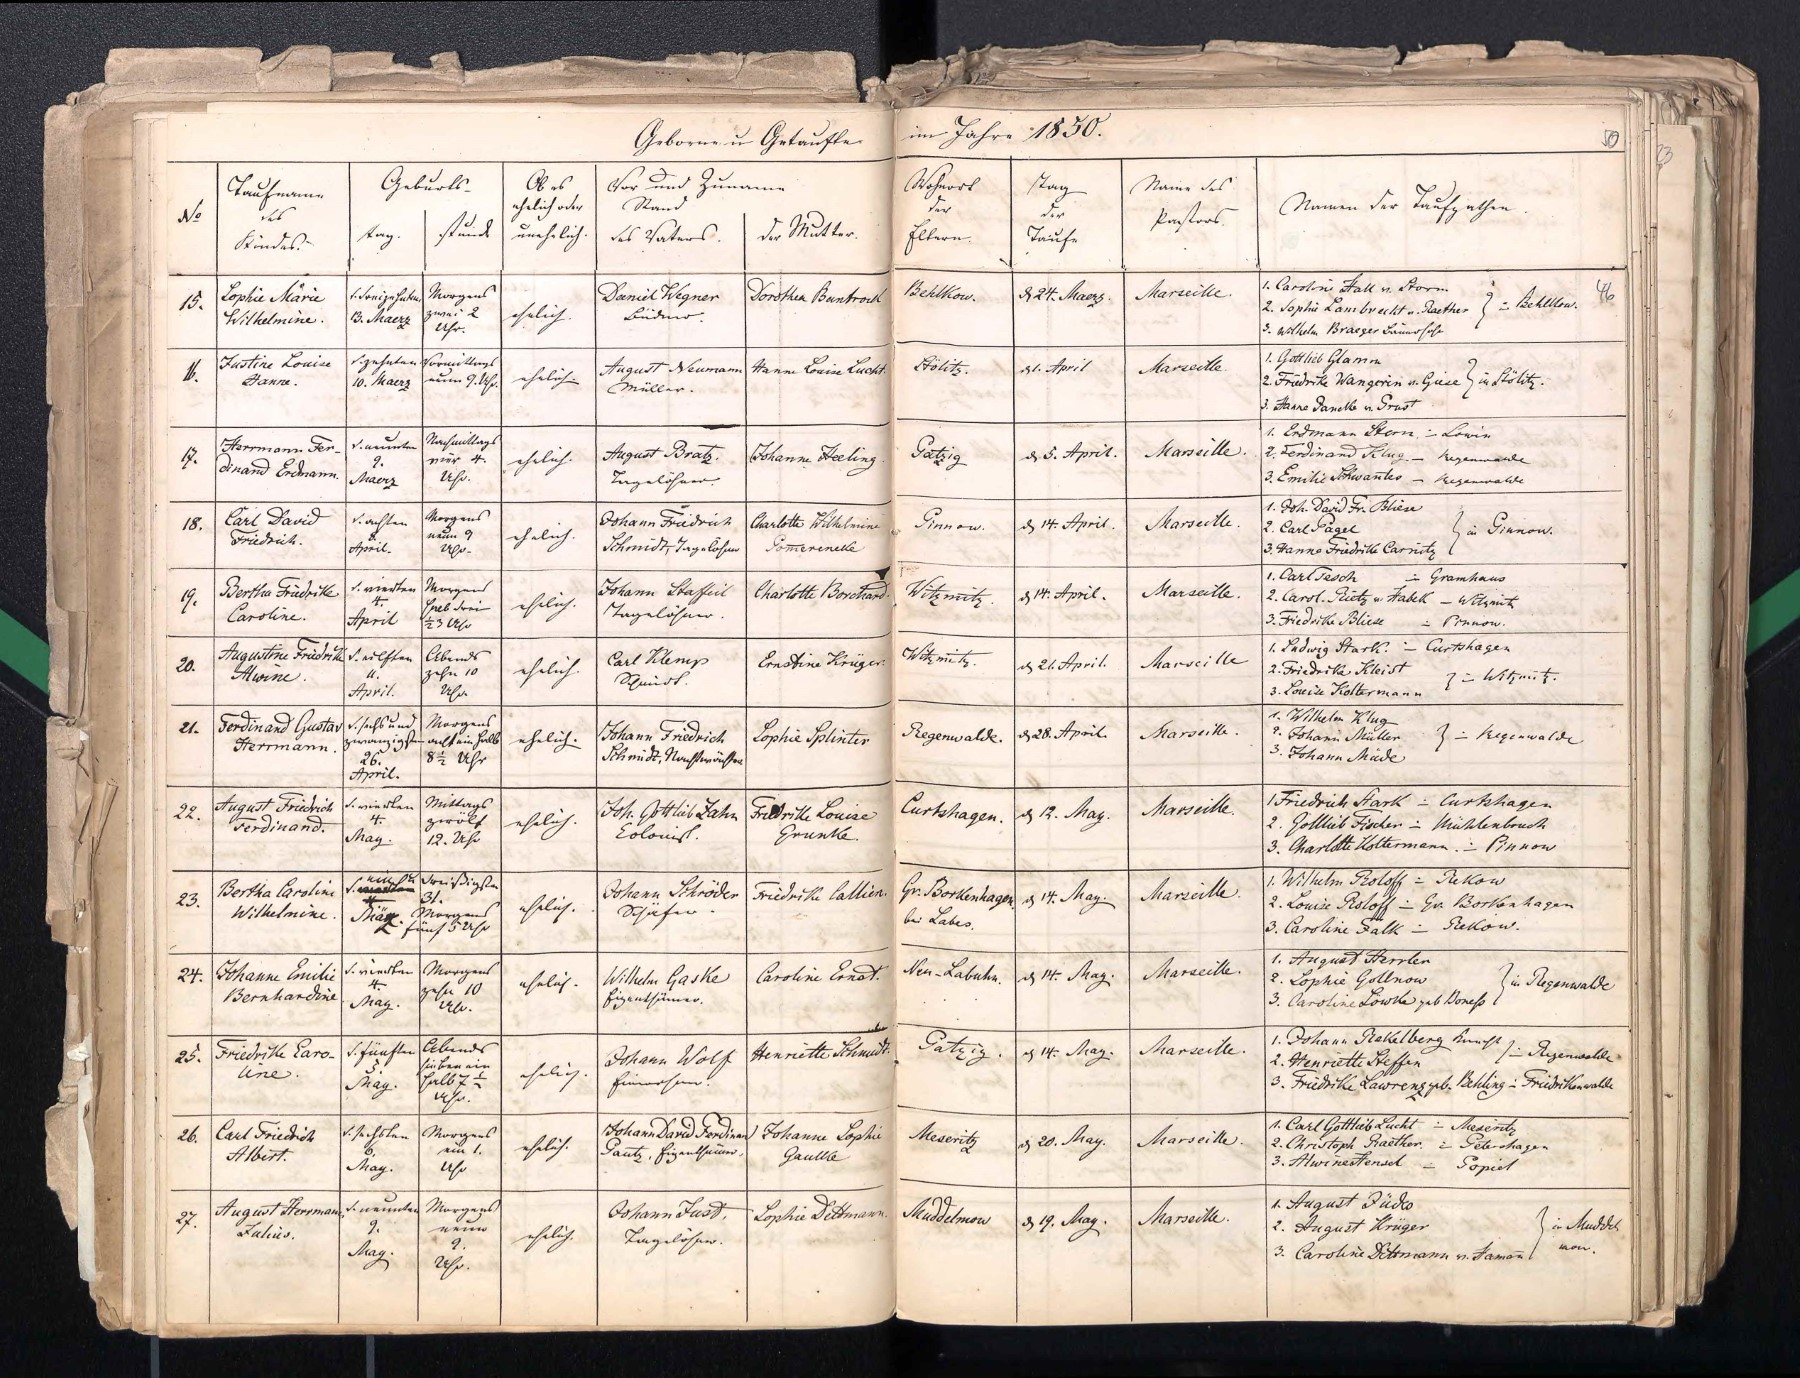 Geborne u Getaufte im Jahre 1850.
50
No
Taufname des Kindes.
Geburts-
tag.
stunde
Ob es ehelich oder unehelich.
Vor und Zuname
Stand
des Vaters.
der Mutter.
Wohnort der Eltern.
Tag der Taufe
Name des Pastors.
Namen der Taufpathen.
46
15.
Sophie Marie
Wilhelmine.
13. Maerz
Morgens
zwei 2
Uhr.
ehelich.
Daniel Wegner
Büdner.
Dorothea Buntrock
Behlkow.
d 24. Maerz.
Marseille.
1. Caroline Falk v. Storm
2. Sophie Lambrecht v. Raether
3. Wilhelm Braeger
Behlkow.
16.
Justine Louise
Hanne.
d. zehnten
10. Maerz
Vormittags
neun 9. Uhr.
ehelich
August Neumann
Müller.
Hanne Louise Lucht.
Stölitz.
d 1. April
Marseille
1. Gottlieb Glamm
2. Friedrike Wangerin v. Giese
3. Hanne
in Stölitz.
17.
Herrmann Fer-
dinand Erdmann.
d. neunten
9.
Maerz
Nachmittags
vier 4.
Uhr.
ehelich.
August Bratz.
Tagelöhner.
Johanne Heeling
Gatzig
d 5. April.
Marseille.
1. Erdmann Stern - Lowin
2. Ferdinand Klug - Regenwalde
3. Emilie Schwantes - Regenwalde
18.
Carl David
Friedrich.
d. achten
8.
April.
Morgens
neun 9
Uhr.
ehelich.
Johann Friedrich
Schmidt, Tagelöhner
Charlotte Wilhelmine
Pomerenke
Pinnow.
d 14. April.
Marseille.
1. Joh. David Fr. Bliese
2. Carl Pagel
3. Hanne Friedrike Carnitz
in Pinnow.
19.
Bertha Friedrike
Caroline.
d. vierten
4.
April
Morgens
halb drei
½3 Uhr
ehelich.
Johann Staffeil
Tagelöhner.
Charlotte Borchard.
Witzmitz.
d 14. April.
Marseille.
1. Carl Tesch - Gramhaus
2. Carol. Rietz v. Habek - Witzmitz
3. Friedrike Bliese - Pinnow.
20.
Augustine Friedrike
Alwine.
d. eilften
11.
April.
Abends
zehn 10
Uhr.
ehelich.
Carl Klemp
Schmidt.
Ernstine Krüger.
Witzmitz.
d 21. April.
Marseille
1. Ludwig Stark. - Curtshagen
2. Friedrike Kleist
3. Louise Koltermann
- Witzmitz.
21.
Ferdinand Gustav
Herrmann.
d. sechs und
zwanzigsten
26.
April.
Morgens
acht ein halb
8½ Uhr
ehelich.
Johann Friedrich
Schmidt, Nachtwächter
Sophie Splinter
Regenwalde.
d 28. April.
Marseille.
1. Wilhelm Klug
2. Johann Müller
3. Johann Müde
- Regenwalde
22.
August Friedrich
Ferdinand.
d. vierten
4.
May.
Mittags
zwölf
12. Uhr
ehelich.
Joh. Gottlieb Zahn
Colonist.
Friedrike Louise
Grunke.
Curtshagen.
d 12. May.
Marseille.
1 Friedrich Stark - Curtshagen
2. Gottlieb Fischer - Mühlenbruch
3. Charlotte Koltermann. - Pinnow
23.
Bertha Caroline
Wilhelmine.
d. ein u
März.
dreißigsten
31.
Morgens
fünf 5 Uhr
ehelich.
Johann Schröder
Schäfer.
Friedrike Callien.
Gr. Borkenhagen
bei Labes.
d 14. May.
Marseille.
1. Wilhelm Roloff - Rekow
2. Louise Roloff - Gr. Borkenhagen
3. Caroline Falk - Rekow.
24.
Johanne Emilie
Bernhardine
d. vierten
4.
May.
Morgens
zehn 10
Uhr.
ehelich.
Wilhelm Gaske
Eigenthümer.
Caroline Ernst.
Neu-Labuhn.
d 14. May.
Marseille.
1. August Herrler
2. Sophie Gollnow
3. Caroline Löwke geb Boness
in Regenwalde
25.
Friedrike Caro-
line.
d. fünften
5
May.
Abends
sieben ein
halb 7½
Uhr.
ehelich.
Johann Wolf
Einwohner.
Henriette Schmidt.
Gatzig.
d 14. May.
Marseille.
1. Johann Rakelberg Knecht
2. Henriette Steffen
- Regenwalde
3. Friedrike Lawrenz geb. Behling - Friedrikenwalde
26.
Carl Friedrich
Albert.
d. sechsten
6.
May.
Morgens
ein 1.
Uhr
ehelich.
Johann David Ferdinand
Pautz, Eigenthümer.
Johanne Sophie
Gaulke
Meseritz
d 20. May.
Marseille.
1. Carl Gottlieb Lucht - Meseritz
2. Christoph Raether. - Petershagen
3. Alwine Hensel - Popiel
27.
August Herrmann
Julius.
d. neunten
9.
May.
Morgens
neun
9.
Uhr.
ehelich.
Johann Just,
Tagelöhner.
Sophie Dettmann.
Muddelmow
d 19. May.
Marseille.
1. August Züdke
2. August Krüger
3. Caroline Dettmann v. Haman
in Muddel
mow.